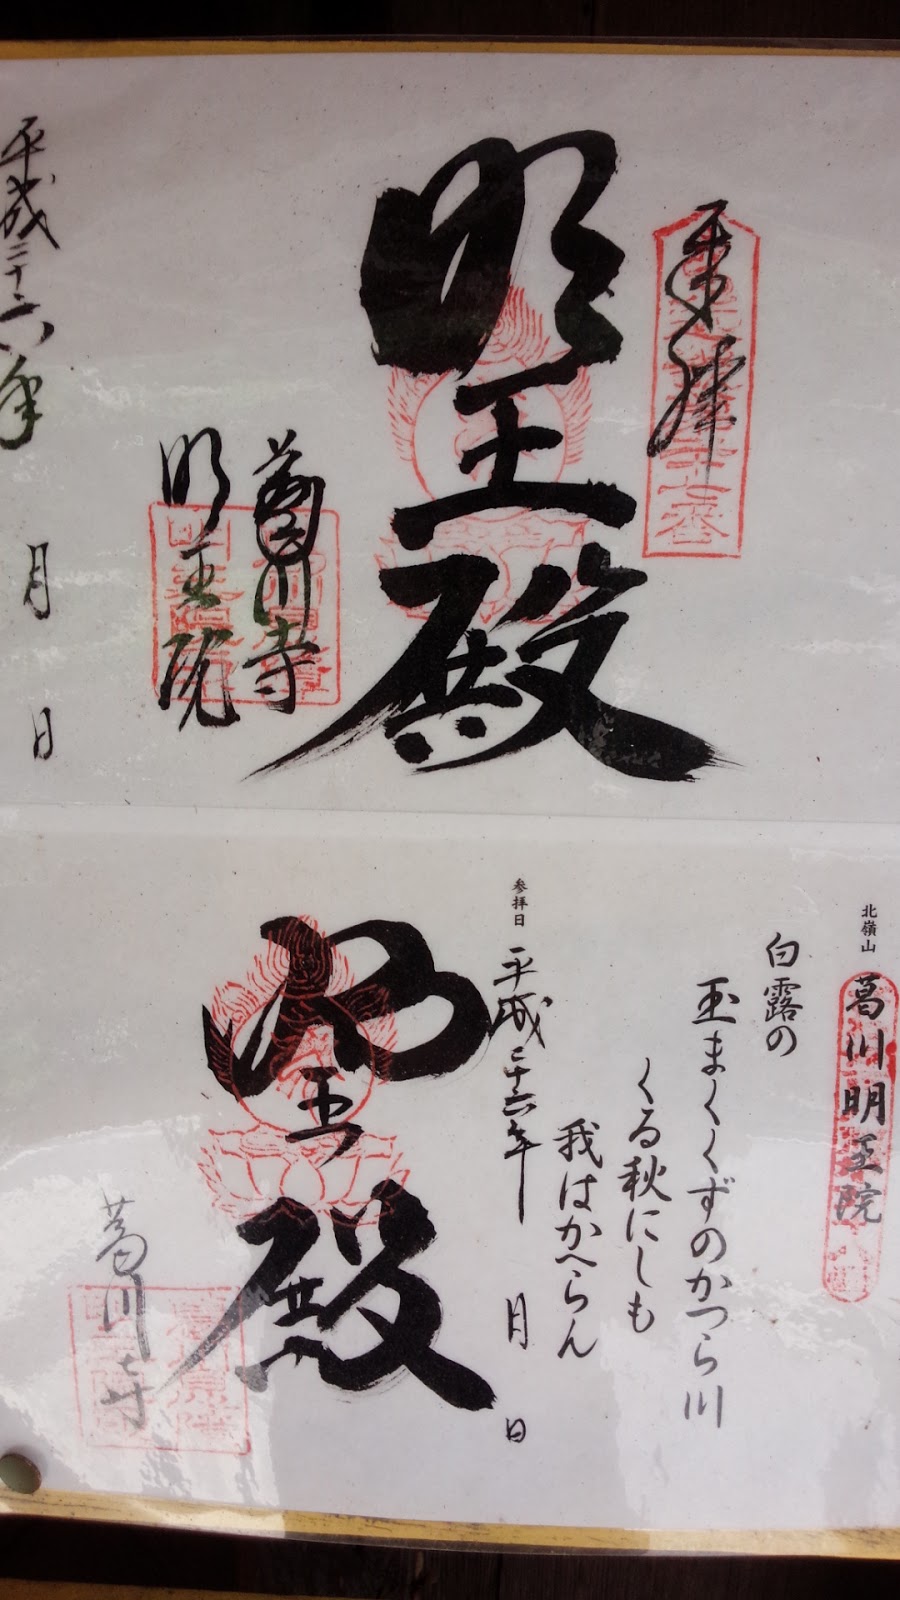 奉拝
明王殿
葛川寺
明王院
平成二十六年
月
日
北嶺山
葛川明王院
白露の
玉まくくずのかつら川
くる秋にしも
我はかへらん
参拝日
平成二十六年
月
日
明王殿
葛川寺